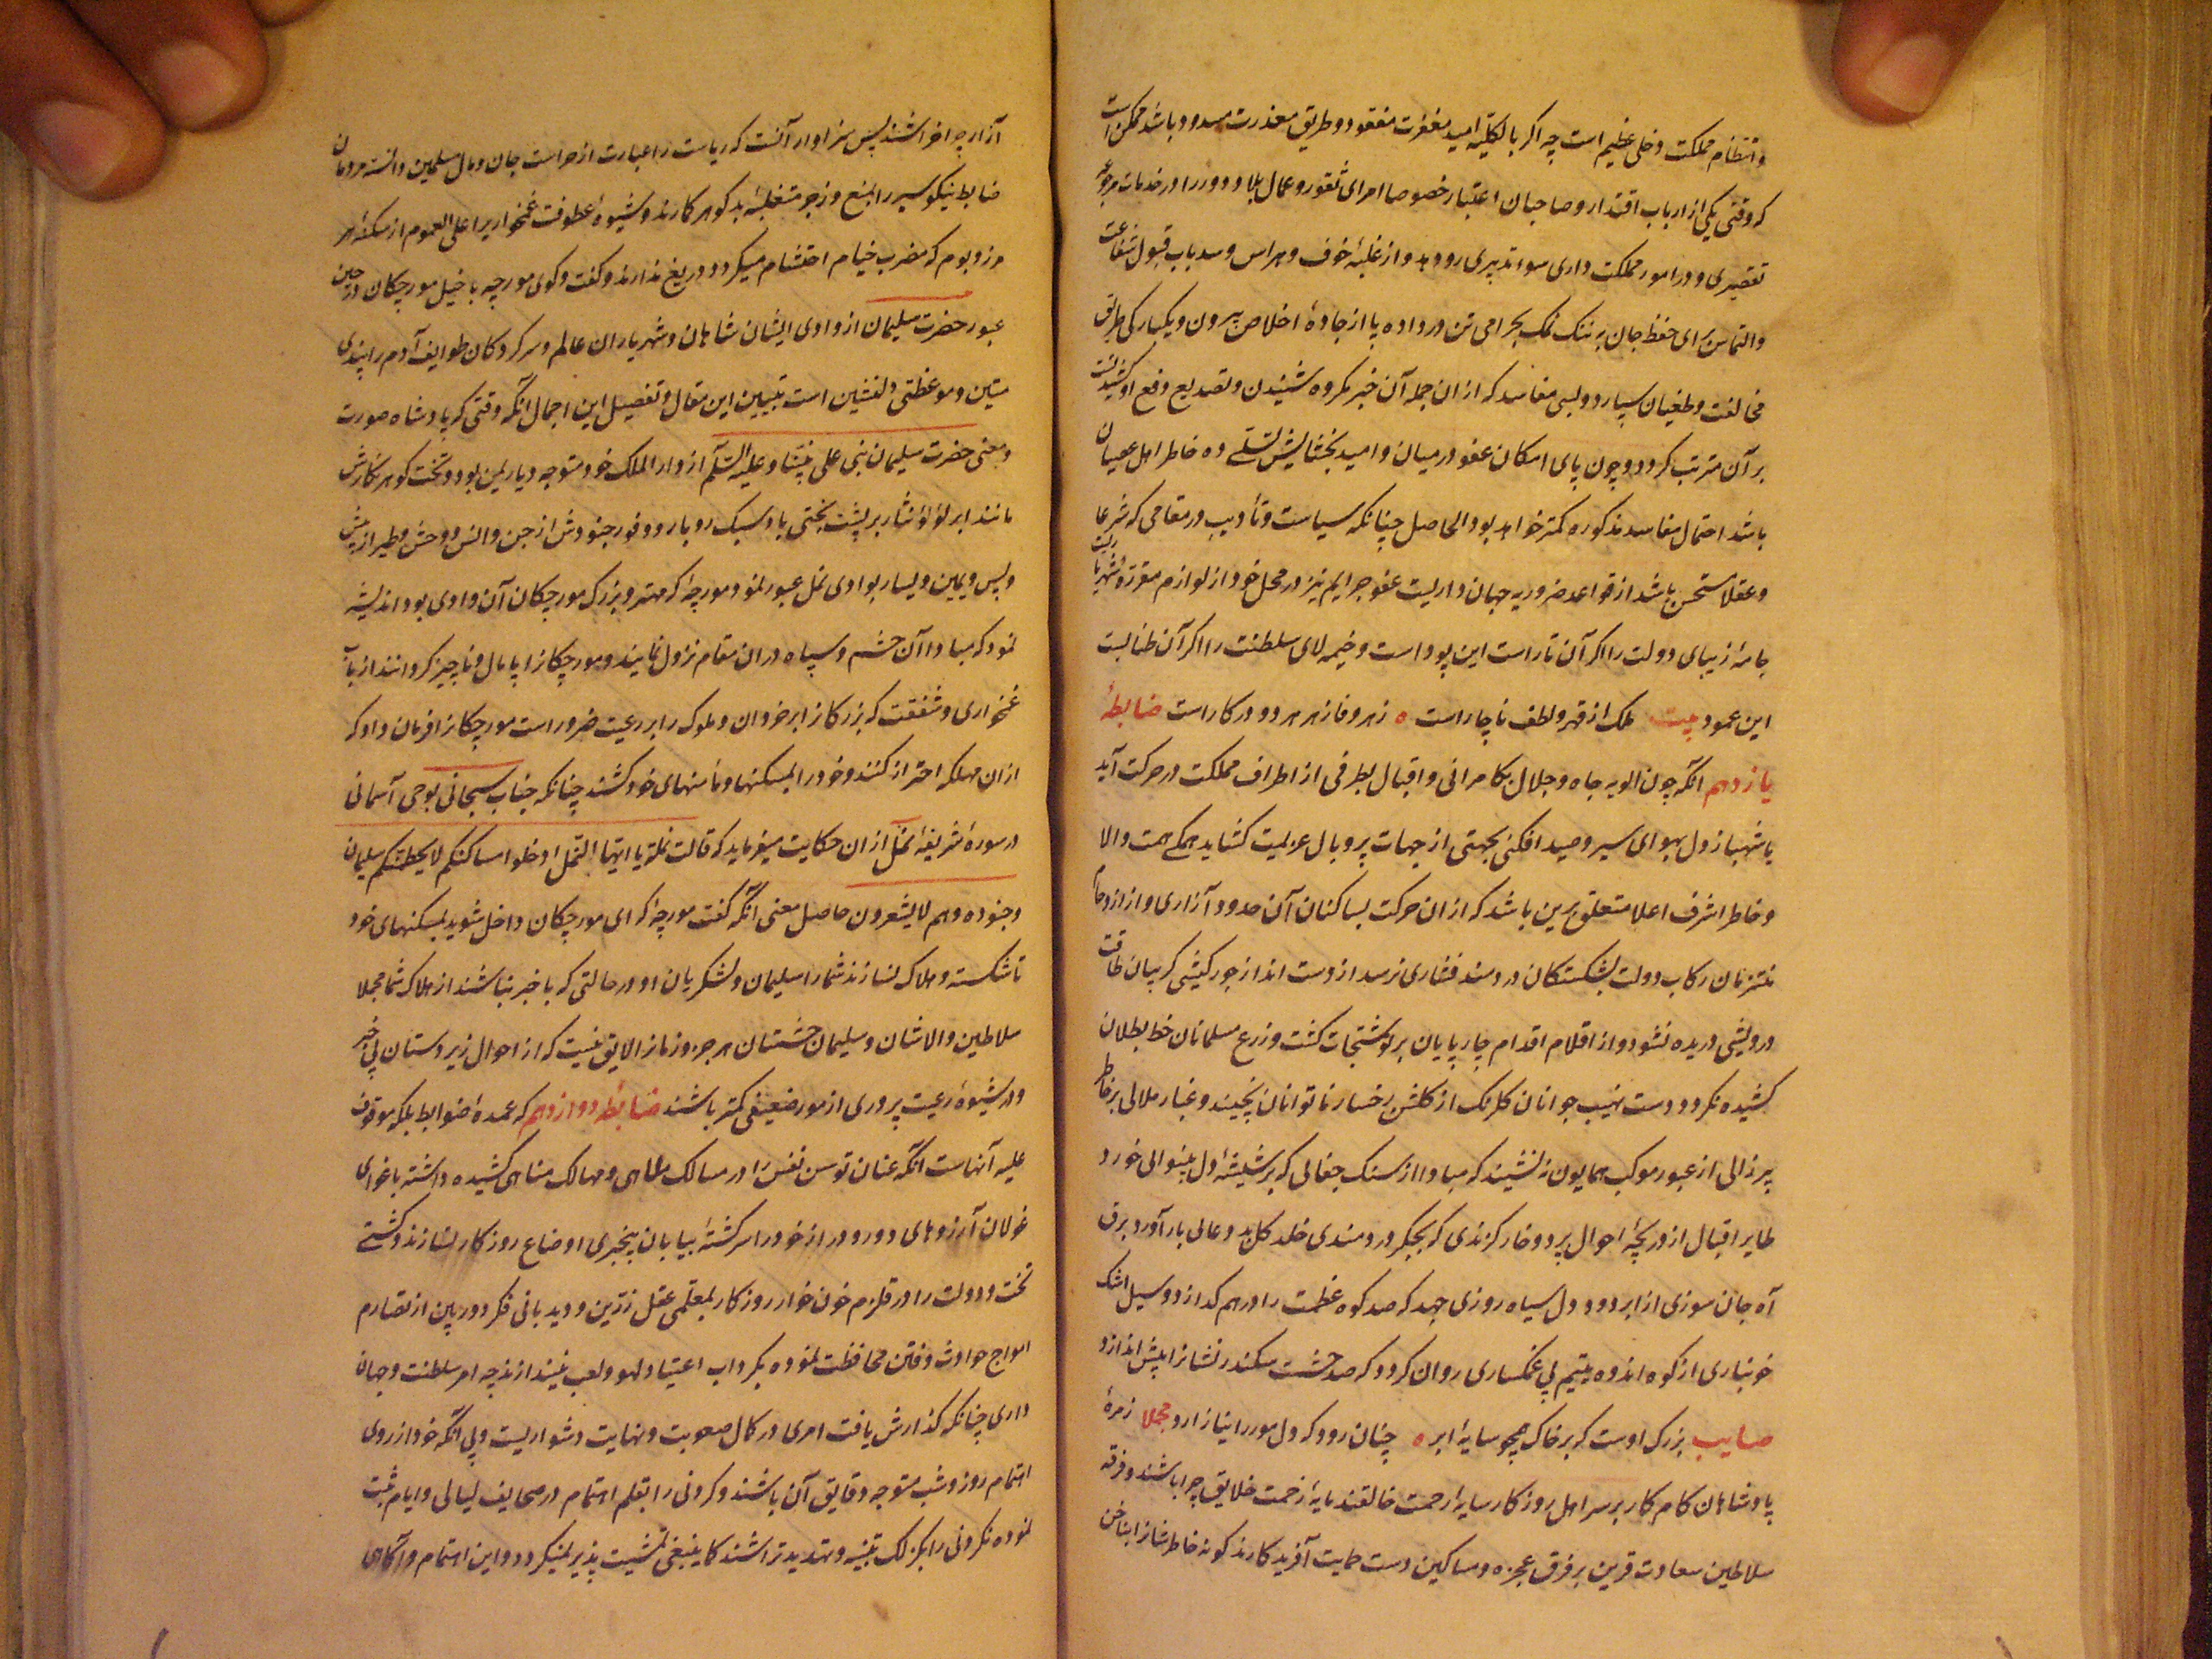 و انتظام مملکت دخلی عظیم است چه اکر بالکلیه امید مغفرت مفقود و طریق معذرت مسدود باشد ممکن است
که وقتی یکی از ارباب اقتدار و صاحبان اعتبار خصوصا امرای ثغور و عمال بلاد دور را در خدمات مرجوعه
تقصیری و در امور مملکت داری سوء تدبیری رو دهد و از غلبهٔ خوف و هراس و سد باب قبول شفاعت
و التماس برای حفظ جان بر ننک نمک بحرامی تن در داده پا از جادهٔ اخلاص بیرون و یکبارکی طریق
مخالفت و طغیان سپارد و بسی مفاسد که از ان جمله آن خبر مکروه شنیدن و تصدیع دفع او کشیدنست
بر آن مترتب کردد و چون پای امکان عفو در میان و امید بخشایش تسلی ده خاطر اهل عصیان
باشد احتمال مفاسد مذکوره کمتر خواهد بود الحاصل چنانکه سیاست و تأدیب در مقامی که شرعا
و عقلا مستحسن باشد از قواعد ضروریه جهان داریست عفو جرایم نیز در محل خود از لوازم مقرره شهریاریست
جامهٔ زیبای دولت را اکر آن تار است این پود است و خیمه لای سلطنت را اکر آن طنابست
این عمود بیت ملک از قهر و لطف ناچار است ه زهر و فازهر هر دو در کار است ضابطهٔ
یازدهم انکه چون الویه جاه و جلال بکامرانی و اقبال بطرفی از اطراف مملکت در حرکت آید
یا شهباز دل بهوای سیر و صید افکنی بجهتی از جهات پر و بال عزیمت کشاید همکی همت والا
و خاطر اشرف اعلا متعلق برین باشد که از ان حرکت بساکنان آن حدود آزاری و از ازدحام
ملتزمان رکاب دولت بشکستکان دردمند فشاری نرسد از دست انداز جور کیشی کریبان طاقت
درویشی دریده نشود و از اقلام اقدام چارپایان بر نوشتجات کشت و زرع مسلمانان خط بطلان
کشیده نکردد و دست نهیب جوانان کلرنک از کلشن رخسار ناتوانان نچیند و غبار ملالی بر خاطر
پیر زالی از عبور موکب همایون ننشیند که مبادا از سنک جفائی که بر شیشهٔ دل بینوائی خورد
طایر اقبال از دریچهٔ احوال پرد و خار کزندی که بجکر دردمندی خلد کل بد دعائی بار آورد برق
آه جان سوزی از ابر دود دل سیاه روزی جهد که صد کوه عظمت را در هم کدازد و سیل اشک
خونباری از کوه اندوه یتیم بی غمکساری روان کردد که صد حشمت سکندر نشانرا از پیش اندازد
صایب بزرک اوست که بر خاک همچو سایهٔ ابر ه چنان رود که دل مور را نیازارد مجملا زمرهٔ
پادشاهان کام کار بر سر اهل روزکار سایهٔ رحمت خالقند مایهٔ زحمت خلایق چرا باشند و فرقه
سلاطین سعادت قرین بر فرق عجزه و مساکین دست حمایت آفریدکارند کونه خاطرشانرا بناخن
آزار چرا خراشند پس سزاوار آنست که ریاست را عبارت از حراست جان و مال مسلمین دانسته مردمان
ضابط نیکو سیر را بمنع و زجر متغلبهٔ بد کوهر کمارند و شیوهٔ عطوفت غمخواریرا علی العموم از سکنهٔ هر
مرز و بوم که مضرب خیام احتشام میکردد دریغ ندارند و کفت و کوی مورچه با خیل مورچکان در حین
عبور حضرت سلیمان از وادی ایشان شاهان و شهریاران عالم و سرکردکان طوایف آدم را پندی
متین و موعظتی دلنشین است تبیین این مقال و تفصیل این اجمال انکه وقتی که پادشاه صورت
و معنی حضرت سلیمان نبی علی نبینا و علیه السلام از دار الملک خود متوجه دیار یمن بود و تخت کوهر نکارش
مانند ابر لؤلؤ نثار بر پشت بختی باد سبک رو بار و وفور جنودش از جن و انس و وحش و طیر از پیش
و پس و یمین و یسار بوادی نمل عبور نمود مورچهٔ که مهتر و بزرک مورچکان آن وادی بود اندیشه
نمود که مبادا آن حشم و سپاه در ان مقام نزول نمایند و مورچکانرا پامال و ناچیز کردانند از باب
غمخواری و شفقت که بزرکانرا بر خردان و ملوک را بر رعیت ضرور است مورچکانرا فرمان داد که
از ان مهلکه احتراز کنند و خود را بمسکنها و مأمنهای خود کشند چنانکه جناب سبحانی بوحی آسمانی
در سورهٔ شریفهٔ نمل از ان حکایت میفرماید که قالت نملة یا ایها النمل ادخلوا مساکنکم لا یحطمنکم سلیمان
و جنوده و هم لا یشعرون حاصل معنی انکه کفت مورچهٔ که ای مورچکان داخل شوید بمسکنهای خود
تا شکسته و هلاک نسازند شما را سلیمان و لشکریان او در حالتی که با خبر نباشند از هلاک شما مجملا
سلاطین والاشان و سلیمان حشمتان هر جزو زمانرا لایق نیست که از احوال زیردستان بی خبر
و در شیوهٔ رعیت پروری از مور ضعیفی کمتر باشند ضابطه دوازدهم که عمدهٔ ضوابط بلکه موقوف
علیه آنهاست انکه عنان توسن نفس را در مسالک ملاهی و مهالک مناهی کشیده داشته باغوای
غولان آرزوهای دور و دراز خود را سرکشتهٔ بیابان بیخبری اوضاع روزکار نسازند و کشتی
تخت و دولت را در قلزم خون خوار روزکار بمعلمی عقل رزین و دیدبانی فکر دوربین از تصادم
امواج حوادث و فتن محافظت نموده بکرداب اعتیاد لهو و لعب نیندازند چه امر سلطنت و جهان
داری چنانکه کذارش یافت امری در کمال صعوبت و نهایت دشواریست و بی انکه خود از روی
اهتمام روز و شب متوجه دقایق آن باشند و کردنی را بقلم اهتمام در صحایف لیالی و ایام ثبت
نموده نکردنی را بکزلک تنبیه و تهدید تراشند کما ینبغی تمشیت پذیر نمیکردد و این اهتمام و آکاهی